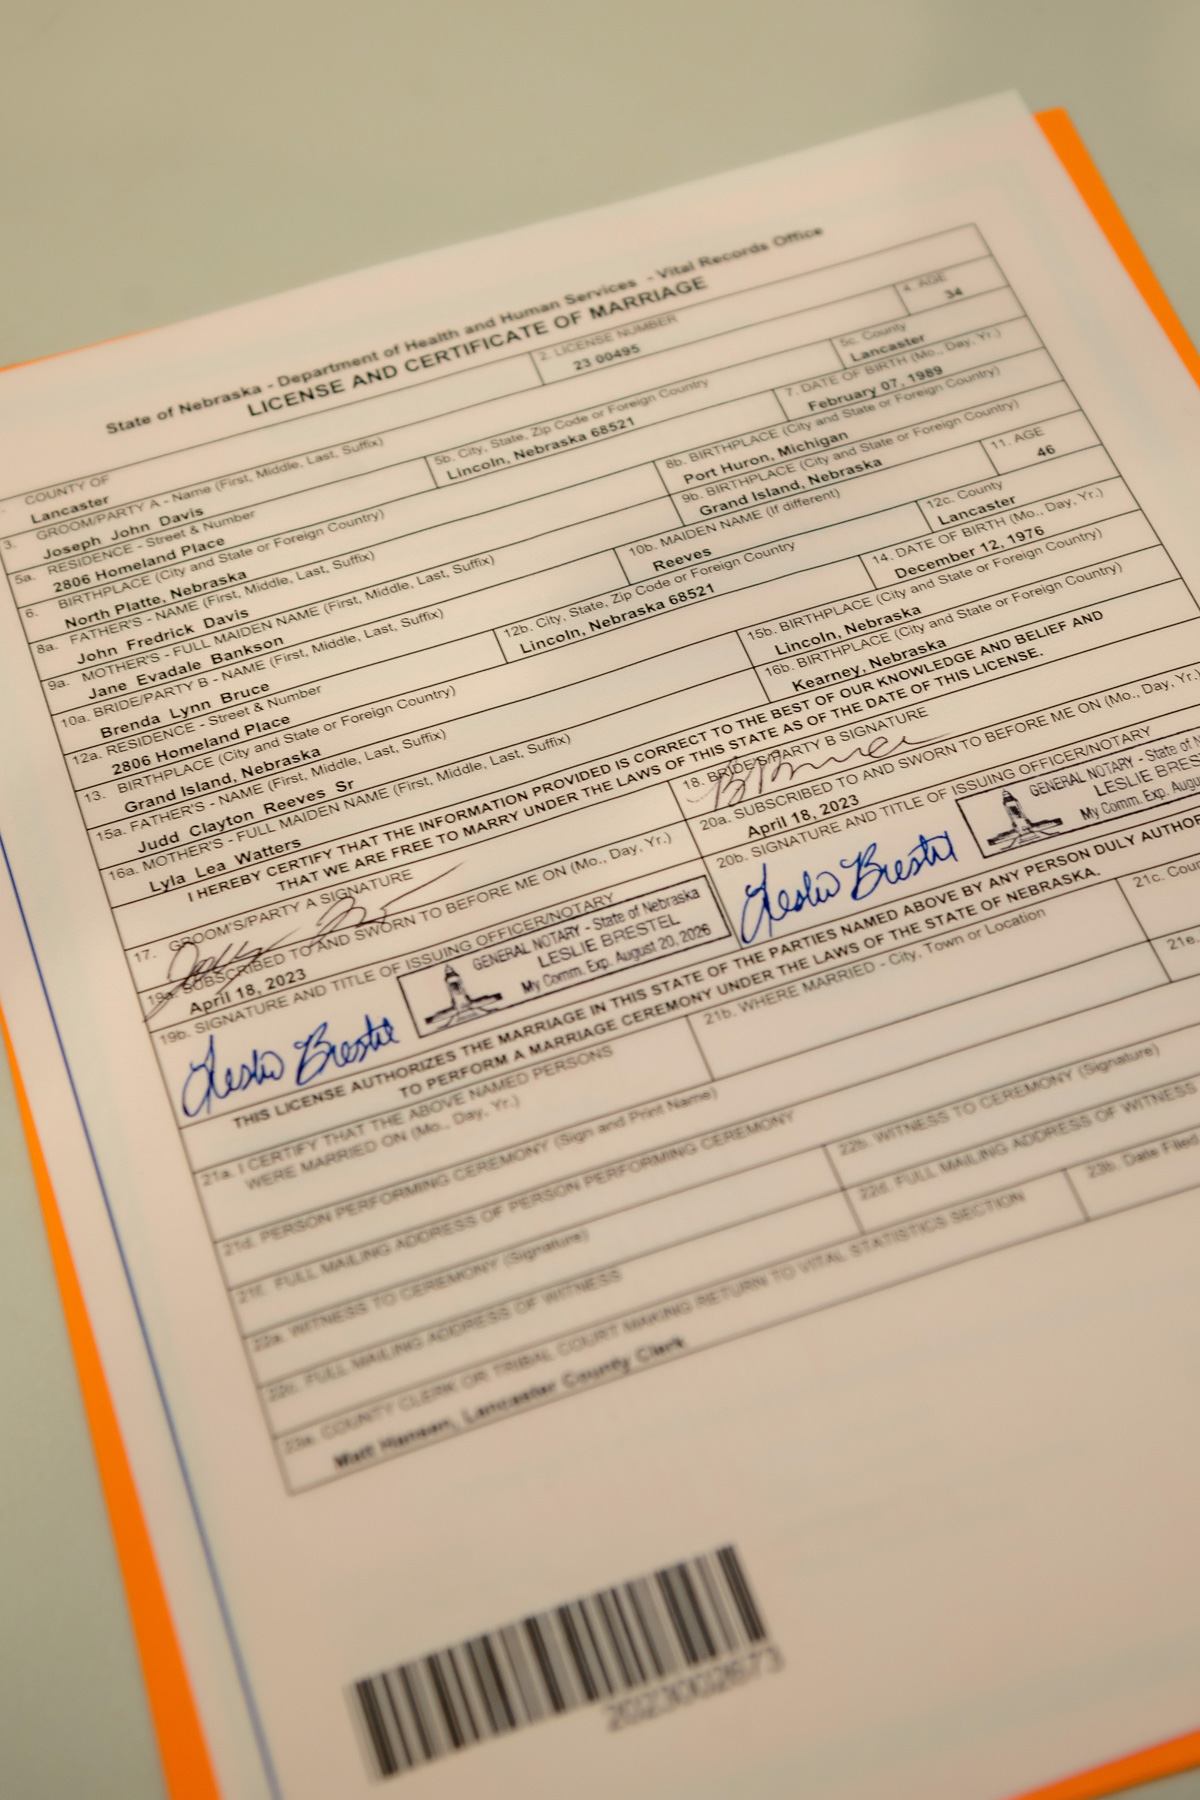 State of Nebraska - Department of Health and Human Services - Vital Records Office
LICENSE AND CERTIFICATE OF MARRIAGE
COUNTY OF
Lancaster
2. LICENSE NUMBER
23 00495
3. GROOM/PARTY A - Name (First, Middle, Last, Suffix)
Joseph John Davis
4. AGE
34
5a. RESIDENCE - Street & Number
2806 Homeland Place
5b. City, State, Zip Code or Foreign Country
Lincoln, Nebraska 68521
5c. County
Lancaster
6. BIRTHPLACE (City and State or Foreign Country)
North Platte, Nebraska
7. DATE OF BIRTH (Mo., Day, Yr.)
February 07, 1989
8a. FATHER'S - NAME (First, Middle, Last, Suffix)
John Fredrick Davis
8b. BIRTHPLACE (City and State or Foreign Country)
Port Huron, Michigan
9a. MOTHER'S - FULL MAIDEN NAME (First, Middle, Last, Suffix)
Jane Evadale Bankson
9b. BIRTHPLACE (City and State or Foreign Country)
Grand Island, Nebraska
10a. BRIDE/PARTY B - NAME (First, Middle, Last, Suffix)
Brenda Lynn Bruce
10b. MAIDEN NAME (If different)
Reeves
11. AGE
46
12a. RESIDENCE - Street & Number
2806 Homeland Place
12b. City, State, Zip Code or Foreign Country
Lincoln, Nebraska 68521
12c. County
Lancaster
13. BIRTHPLACE (City and State or Foreign Country)
Grand Island, Nebraska
14. DATE OF BIRTH (Mo., Day, Yr.)
December 12, 1976
15a. FATHER'S - NAME (First, Middle, Last, Suffix)
Judd Clayton Reeves Sr
15b. BIRTHPLACE (City and State or Foreign Country)
Lincoln, Nebraska
16a. MOTHER'S - FULL MAIDEN NAME (First, Middle, Last, Suffix)
Lyla Lea Watters
16b. BIRTHPLACE (City and State or Foreign Country)
Kearney, Nebraska
I HEREBY CERTIFY THAT THE INFORMATION PROVIDED IS CORRECT TO THE BEST OF OUR KNOWLEDGE AND BELIEF AND
THAT WE ARE FREE TO MARRY UNDER THE LAWS OF THIS STATE AS OF THE DATE OF THIS LICENSE.
17. GROOM'S/PARTY A SIGNATURE
18. BRIDE'S/PARTY B SIGNATURE
19a. SUBSCRIBED TO AND SWORN TO BEFORE ME ON (Mo., Day, Yr.)
April 18, 2023
20a. SUBSCRIBED TO AND SWORN TO BEFORE ME ON (Mo., Day, Yr.)
April 18, 2023
19b. SIGNATURE AND TITLE OF ISSUING OFFICER/NOTARY
Leslie Brestel
GENERAL NOTARY - State of Nebraska
LESLIE BRESTEL
My Comm. Exp. August 20, 2026
20b. SIGNATURE AND TITLE OF ISSUING OFFICER/NOTARY
Leslie Brestel
GENERAL NOTARY - State of
LESLIE
My Comm. Exp.
THIS LICENSE AUTHORIZES THE MARRIAGE IN THIS STATE OF THE PARTIES NAMED ABOVE BY ANY PERSON DULY
TO PERFORM A MARRIAGE CEREMONY UNDER THE LAWS OF THE STATE OF NEBRASKA.
21a. I CERTIFY THAT THE ABOVE NAMED PERSONS
WERE MARRIED ON (Mo., Day, Yr.)
21b. WHERE MARRIED - City, Town or Location
21c.
21d. PERSON PERFORMING CEREMONY (Sign and Print Name)
21e.
21f. FULL MAILING ADDRESS OF PERSON PERFORMING CEREMONY
22a. WITNESS TO CEREMONY (Signature)
22b. WITNESS TO CEREMONY (Signature)
22c. FULL MAILING ADDRESS OF WITNESS
22d. FULL MAILING ADDRESS OF WITNESS
23a. COUNTY CLERK OR TRIBAL COURT MAKING RETURN TO VITAL STATISTICS SECTION
Matt Hansen, Lancaster County Clerk
23b. Date Filed